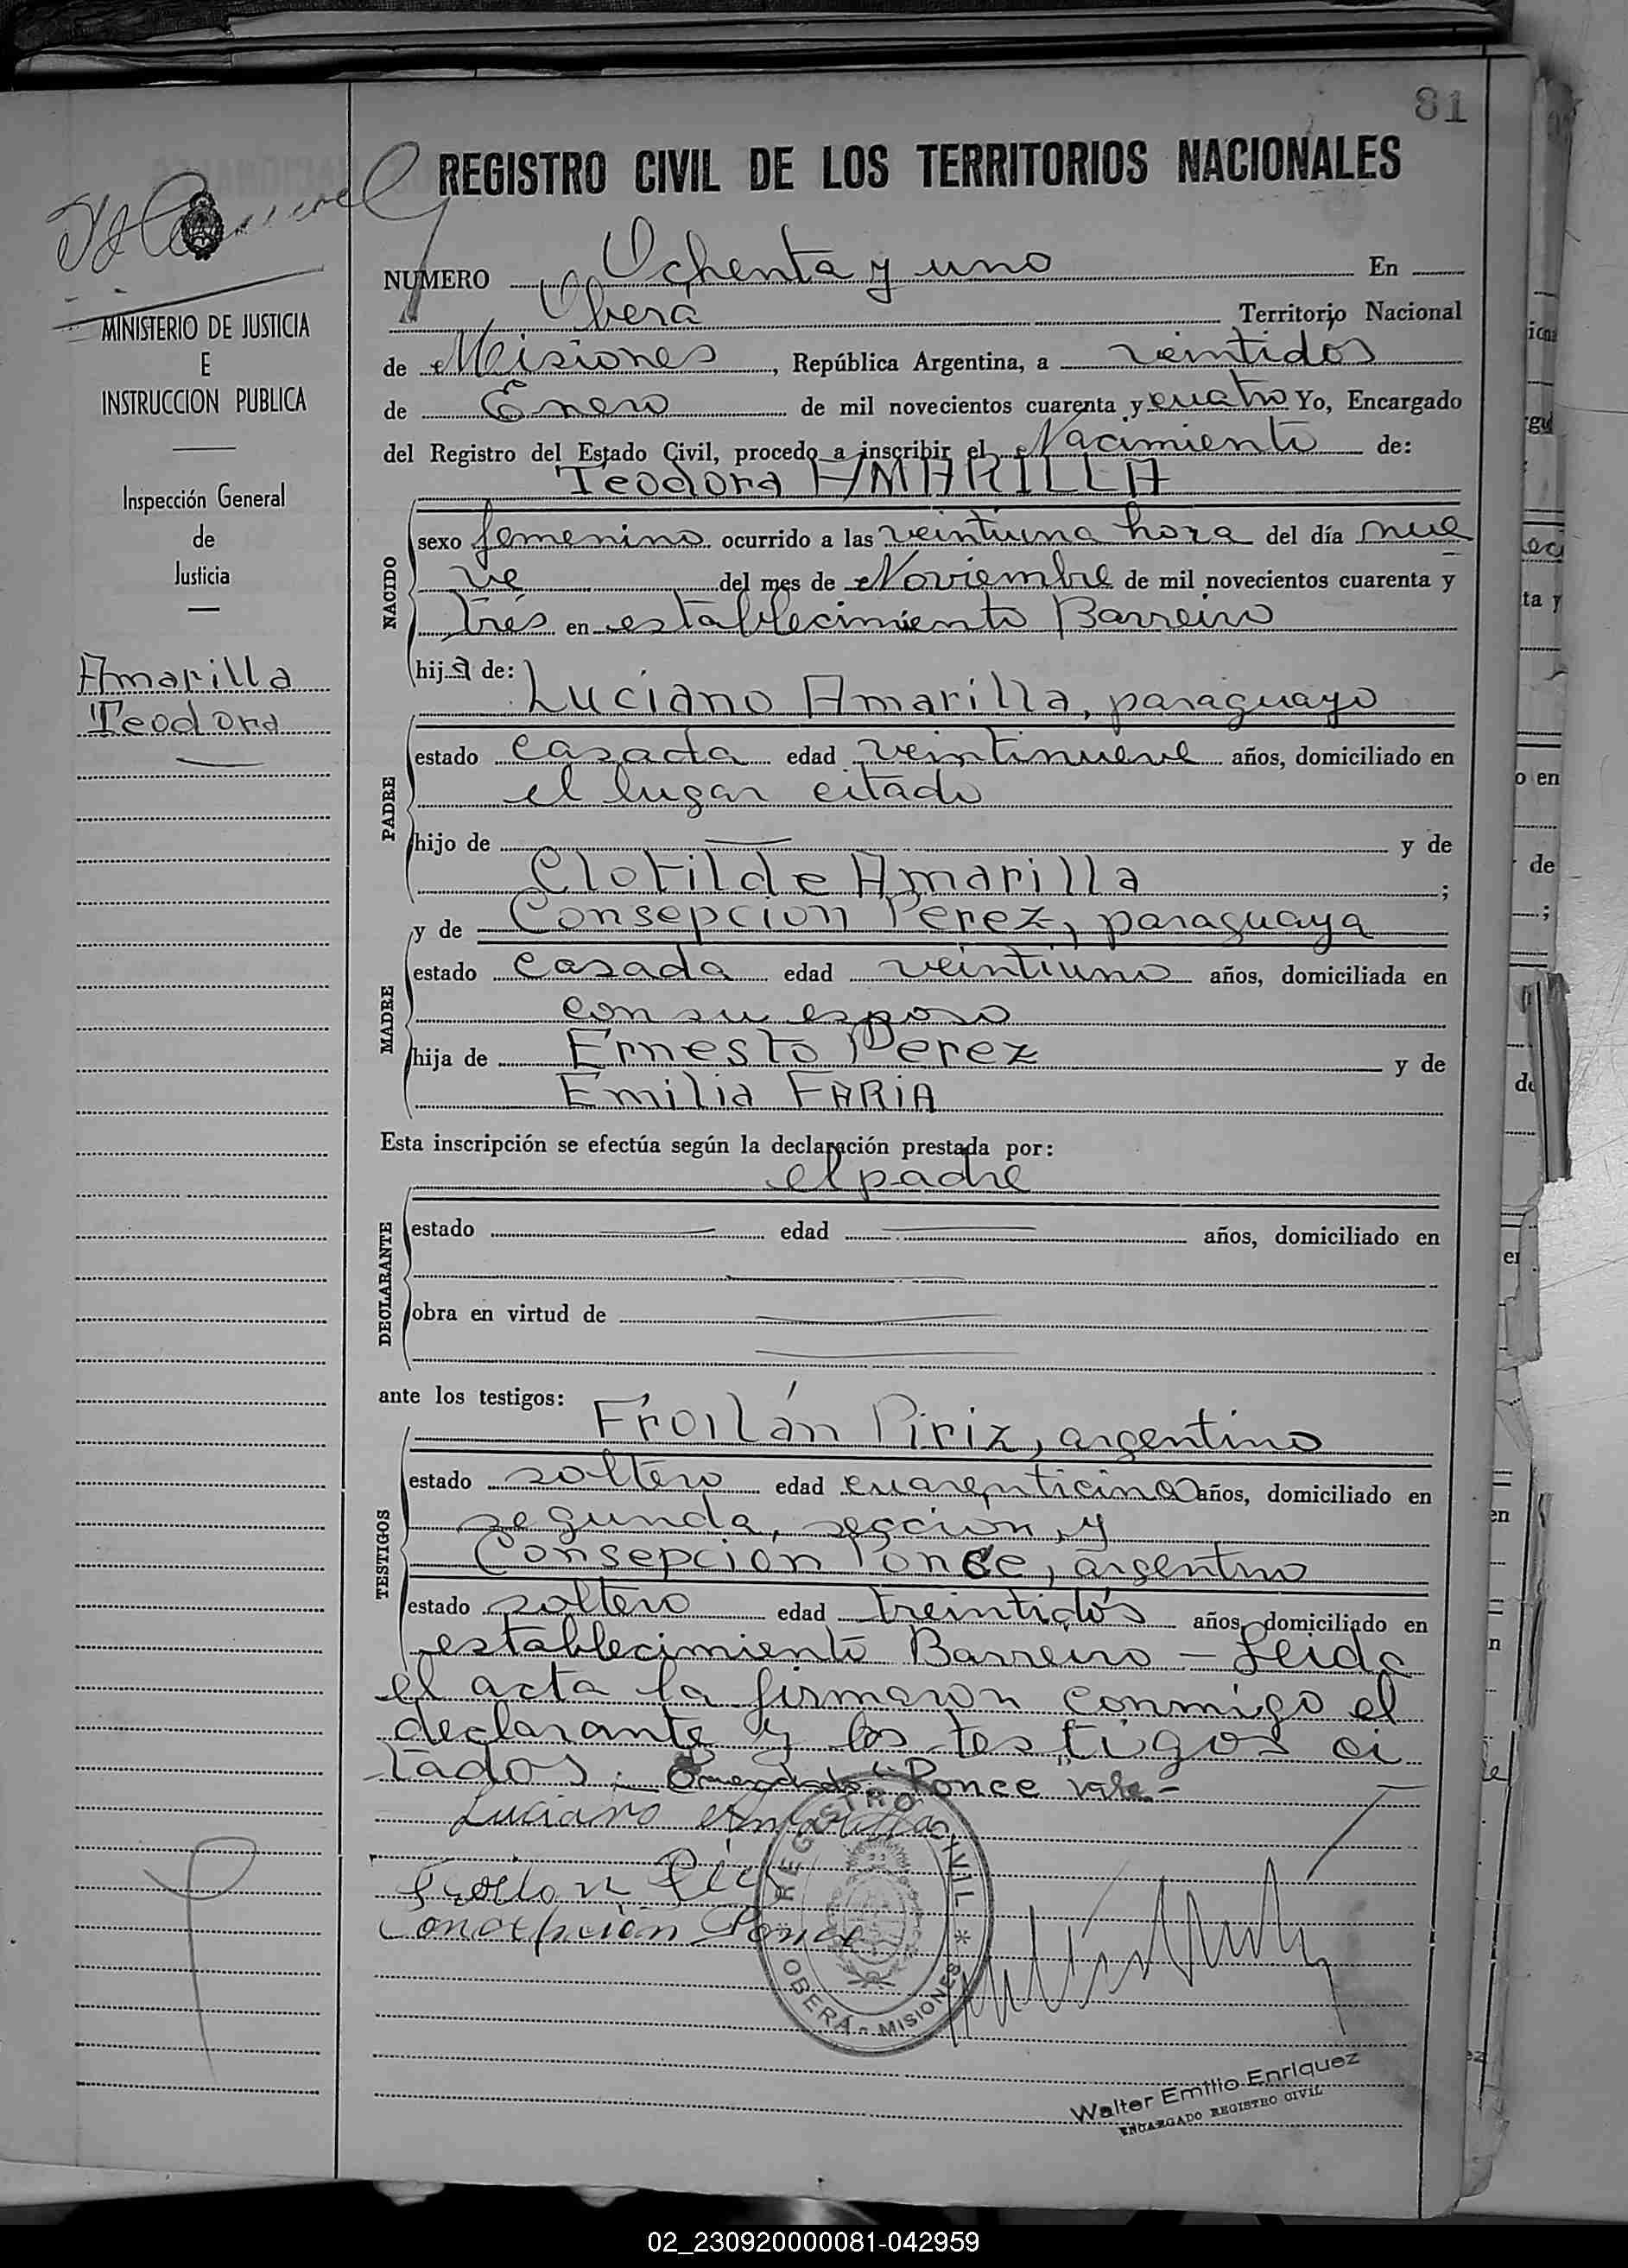 81
REGISTRO CIVIL DE LOS TERRITORIOS NACIONALES
NUMERO Ochenta y uno En
Oberá Territorio Nacional
de Misiones, República Argentina, a veintidos
de Enero de mil novecientos cuarenta y cuatro Yo, Encargado
del Registro del Estado Civil, procedo a inscribir el Nacimiento de:
Teodora AMARILLA
MINISTERIO DE JUSTICIA
E
INSTRUCCION PUBLICA
Inspección General
de
Justicia
Amarilla
Teodora
NACIDO
sexo femenino ocurrido a las veintiuna hora del día nue
ve del mes de Noviembre de mil novecientos cuarenta y
trés en establecimiento Barreiro
hija de:
Luciano Amarilla, paraguayo
PADRE
estado casada edad veintinueve años, domiciliado en
el lugar citado
hijo de y de
Clotilde Amarilla ;
y de Consepcion Perez, paraguaya
MADRE
estado casada edad veintiuno años, domiciliada en
con su esposo
hija de Ernesto Perez y de
Emilia FARIA
Esta inscripción se efectúa según la declaración prestada por:
el padre
DECLARANTE
estado edad años, domiciliado en
obra en virtud de
ante los testigos:
Froilán Piriz, argentino
TESTIGOS
estado soltero edad cuarenticinco años, domiciliado en
segunda, seccion, y
Consepción Ponce, argentino
estado soltero edad treintidós años, domiciliado en
establecimiento Barreiro - Leida
el acta la firmaron conmigo el
declarante y los testigos ci
tados. Emendado: "Ponce" vale.-
Luciano Amarilla
Froilan
Concepción Ponce
REGISTRO CIVIL
* OBERÁ - MISIONES *
Walter Emilio Enriquez
ENCARGADO REGISTRO CIVIL
02_230920000081-042959